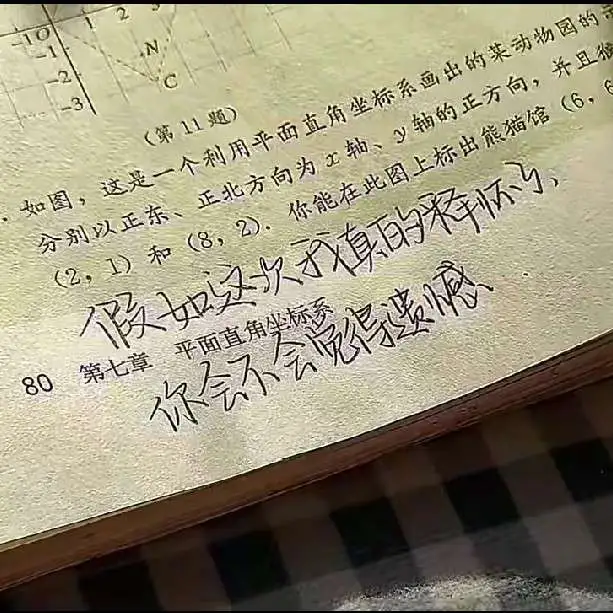 -1 O 1 2 3
-1
-2
-3
N
C
(第 11 题)
. 如图, 这是一个利用平面直角坐标系画出的某动物园的
分别以正东、正北方向为 x 轴、y 轴的正方向, 并且
(2, 1) 和 (8, 2). 你能在此图上标出熊猫馆 (6, 6
假如这次我真的释怀了、
80 第七章 平面直角坐标系
你会不会觉得遗憾、